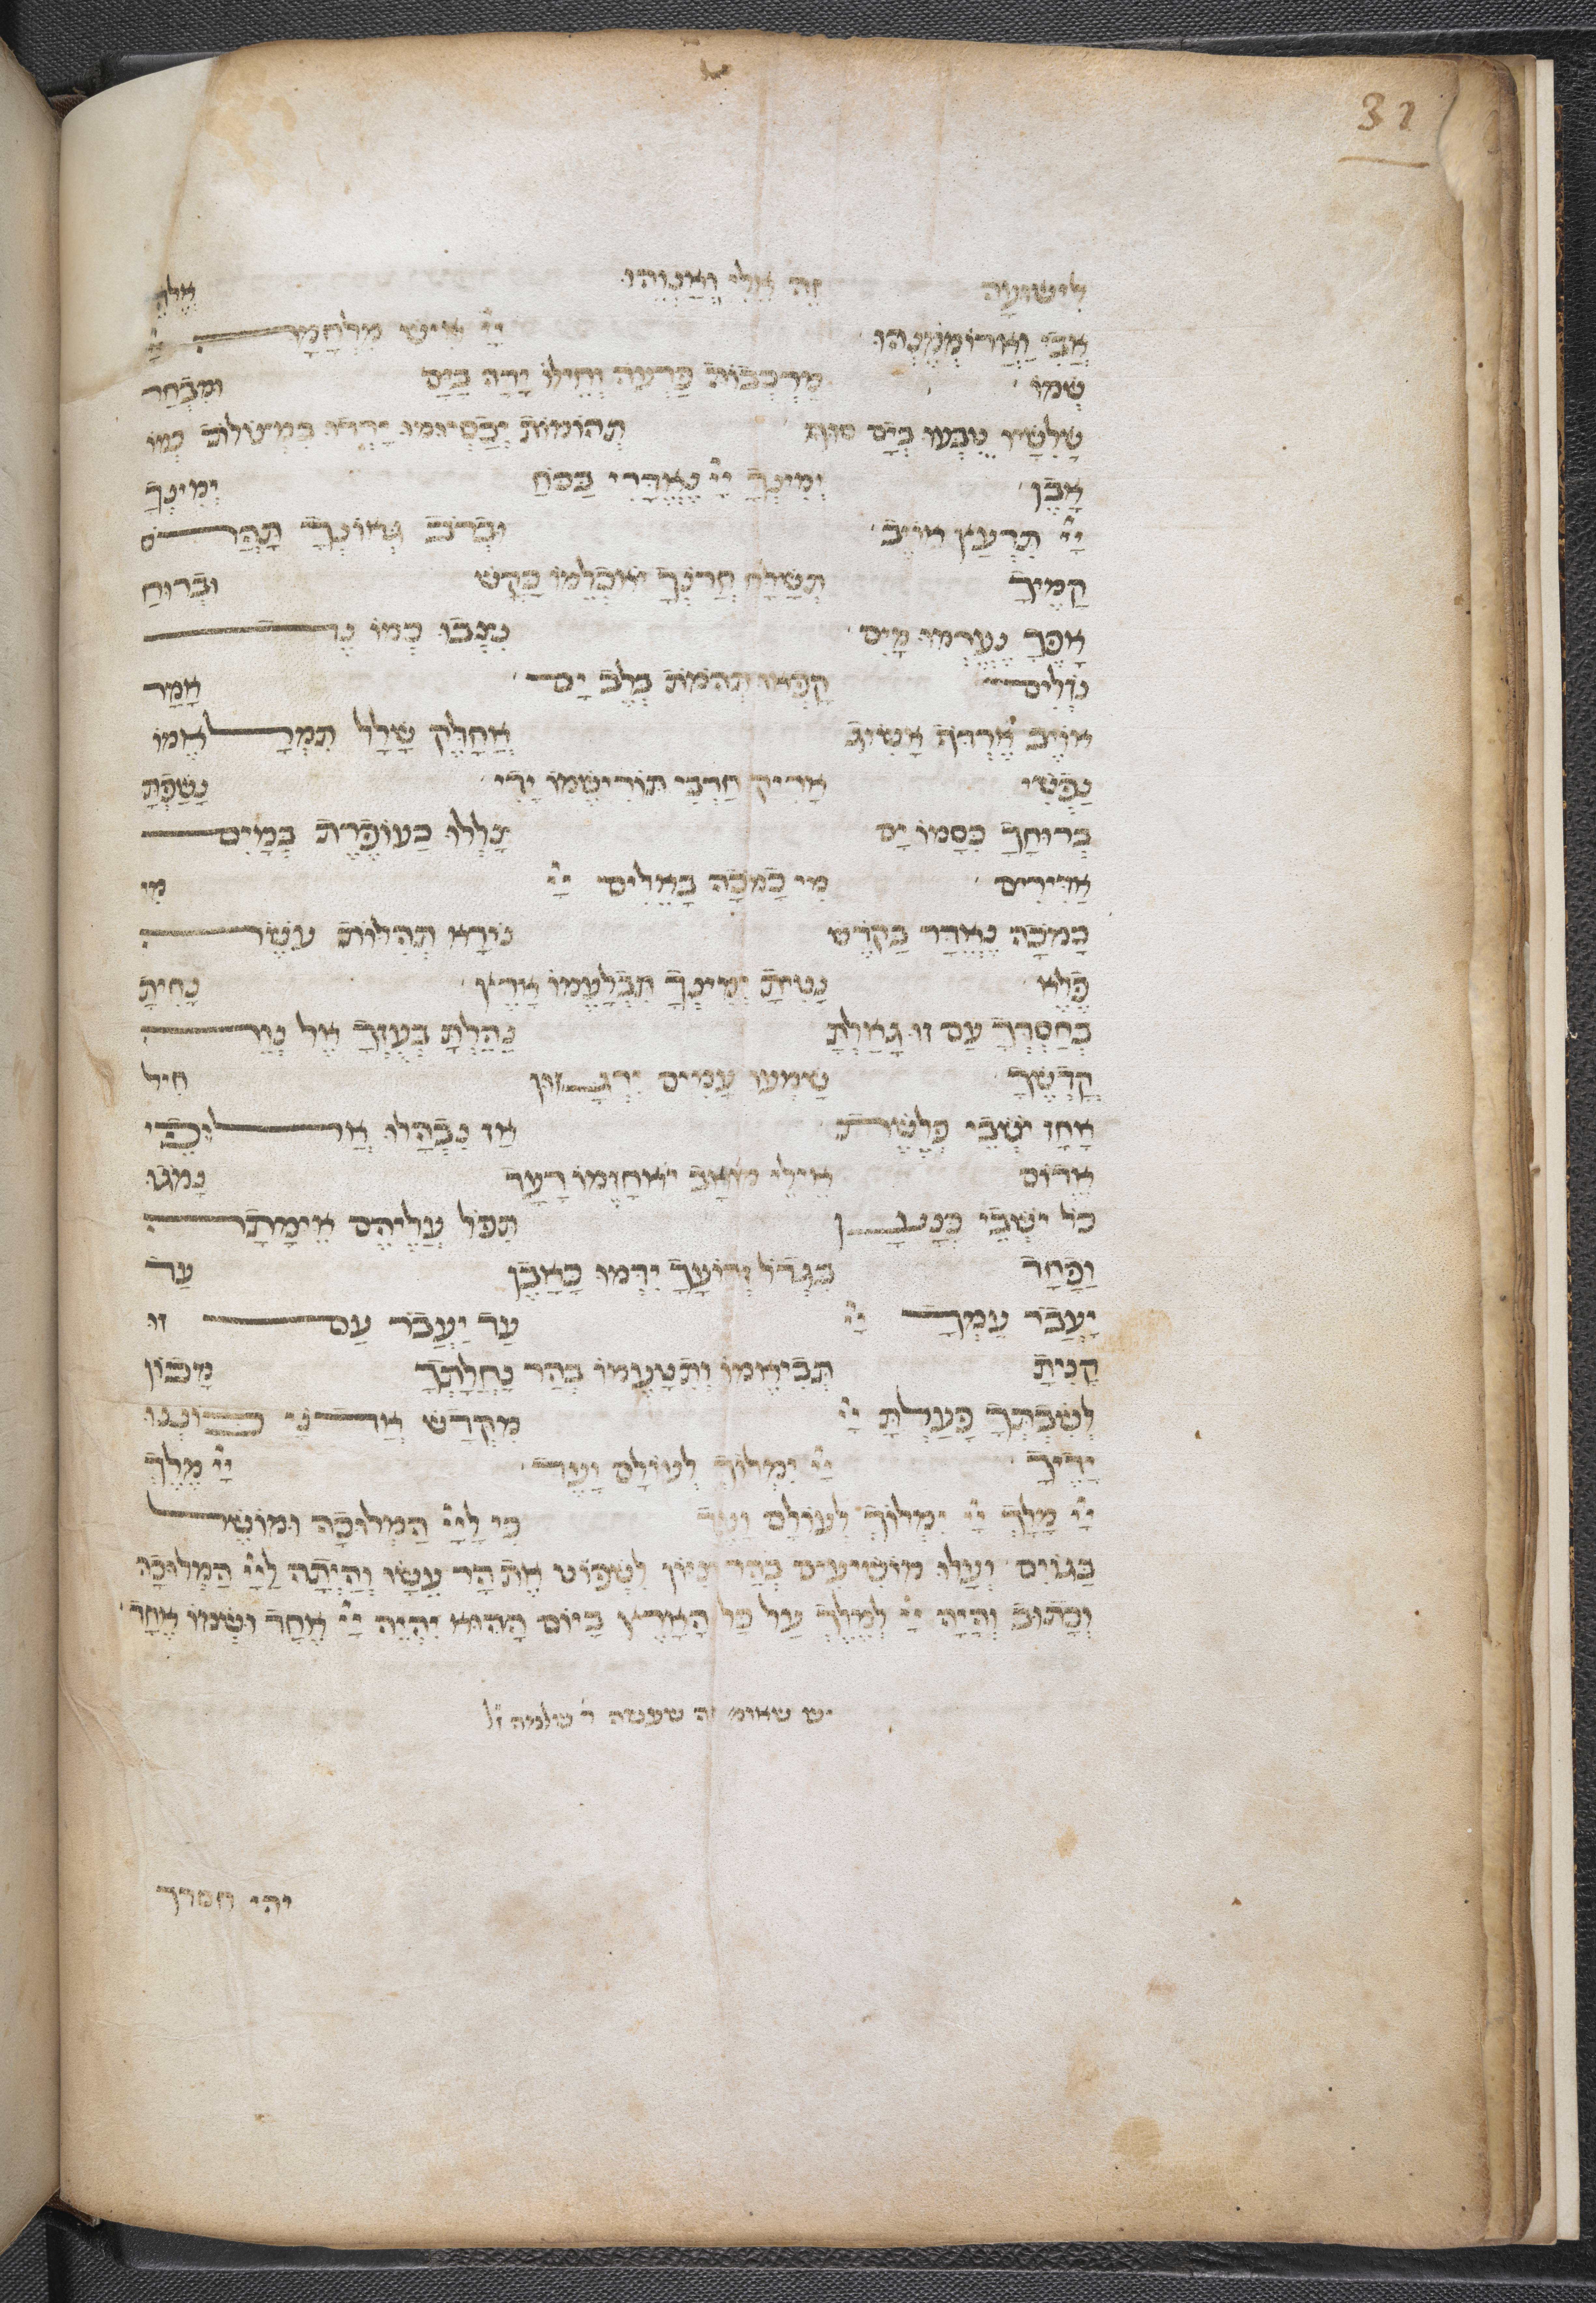 32
לִישׁוּעָה זֶה אֵלִי וְאַנְוֵהוּ אֱלֹהֵי
אָבִי וַאֲרוֹמְמֶנְהוּ יְיָ אִישׁ מִלְחָמָה יְיָ
שְׁמוֹ מַרְכְּבוֹת פַּרְעֹה וְחֵילוֹ יָרָה בַיָּם וּמִבְחַר
שָׁלִשָׁיו טֻבְּעוּ בְיַם סוּף תְּהוֹמוֹת יְכַסְיוּמוּ יָרְדוּ בִמְצוֹלוֹת כְּמוֹ
אָבֶן יְמִינְךָ יְיָ נֶאְדָּרִי בַּכֹּחַ יְמִינְךָ
יְיָ תִּרְעַץ אוֹיֵב וּבְרֹב גְּאוֹנְךָ תַּהֲרֹס
קָמֶיךָ תְּשַׁלַּח חֲרֹנְךָ יֹאכְלֵמוֹ כַּקַּשׁ וּבְרוּחַ
אַפֶּךָ נֶעֶרְמוּ מַיִם נִצְּבוּ כְמוֹ נֵד
נֹזְלִים קָפְאוּ תְהֹמֹת בְּלֶב יָם אָמַר
אוֹיֵב אֶרְדֹּף אַשִּׂיג אֲחַלֵּק שָׁלָל תִּמְלָאֵמוֹ
נַפְשִׁי אָרִיק חַרְבִּי תּוֹרִישֵׁמוֹ יָדִי נָשַׁפְתָּ
בְרוּחֲךָ כִּסָּמוֹ יָם צָלְלוּ כַּעוֹפֶרֶת בְּמַיִם
אַדִּירִים מִי כָמֹכָה בָּאֵלִים יְיָ מִי
כָּמֹכָה נֶאְדָּר בַּקֹּדֶשׁ נוֹרָא תְהִלּוֹת עֹשֵׂה
פֶלֶא נָטִיתָ יְמִינְךָ תִּבְלָעֵמוֹ אָרֶץ נָחִיתָ
בְחַסְדְּךָ עַם זוּ גָּאָלְתָּ נֵהַלְתָּ בְעָזְּךָ אֶל נְוֵה
קָדְשֶׁךָ שָׁמְעוּ עַמִּים יִרְגָּזוּן חִיל
אָחַז יֹשְׁבֵי פְּלָשֶׁת אָז נִבְהֲלוּ אַלּוּפֵי
אֱדוֹם אֵילֵי מוֹאָב יֹאחֲזֵמוֹ רָעַד נָמֹגוּ
כֹּל יֹשְׁבֵי כְנָעַן תִּפֹּל עֲלֵיהֶם אֵימָתָה
וָפַחַד בִּגְדֹל זְרוֹעֲךָ יִדְּמוּ כָּאָבֶן עַד
יַעֲבֹר עַמְּךָ יְיָ עַד יַעֲבֹר עַם זוּ
קָנִיתָ תְּבִיאֵמוֹ וְתִטָּעֵמוֹ בְּהַר נַחֲלָתְךָ מָכוֹן
לְשִׁבְתְּךָ פָּעַלְתָּ יְיָ מִקְּדָשׁ אֲדֹנָי כּוֹנְנוּ
יָדֶיךָ יְיָ יִמְלוֹךְ לְעוֹלָם וָעֶד יְיָ מֶלֶךְ
יְיָ מָלָךְ יְיָ יִמְלוֹךְ לְעוֹלָם וָעֶד כִּי לַיְיָ הַמְּלוּכָה וּמוֹשֵׁל
בַּגּוֹיִם וְעָלוּ מוֹשִׁיעִים בְּהַר צִיּוֹן לִשְׁפּוֹט אֶת הַר עֵשָׂו וְהָיְתָה לַיְיָ הַמְּלוּכָה
וְכָתוּב וְהָיָה יְיָ לְמֶלֶךְ עַל כָּל הָאָרֶץ בַּיּוֹם הַהוּא יִהְיֶה יְיָ אֶחָד וּשְׁמוֹ אֶחָד
יש שאומ׳ זה שעשה ר׳ שלמה ז״ל
יהי חסדך